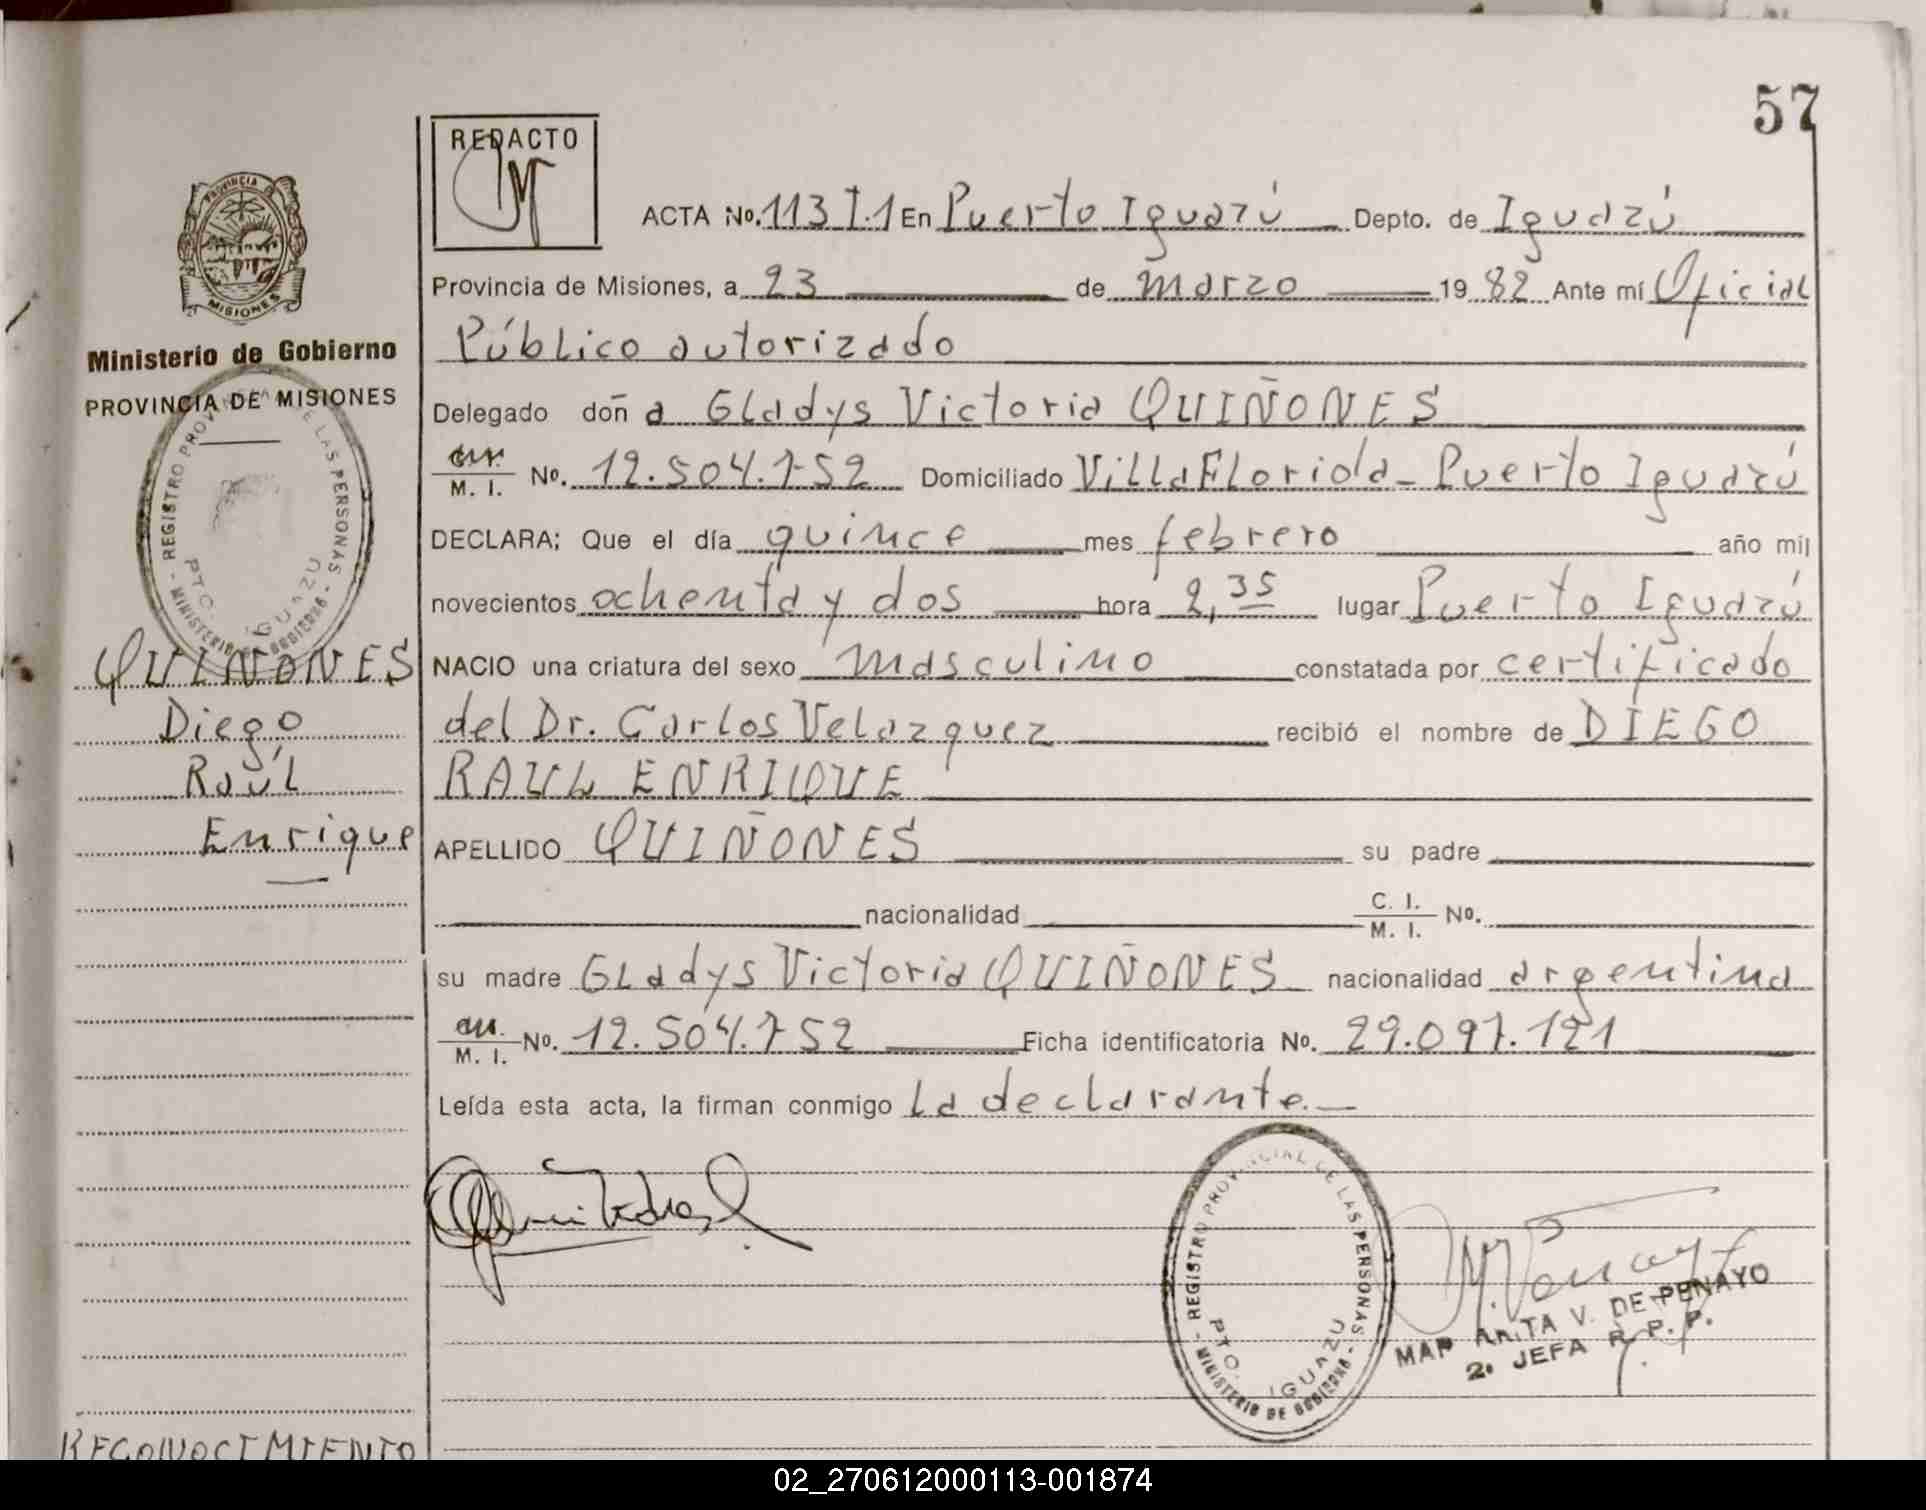 57
REDACTO
ACTA No. 113 T.1 En Puerto Iguazú Depto. de Iguazú
Provincia de Misiones, a 23 de marzo 19 82 Ante mí Oficial
Público autorizado
Delegado doñ a Gladys Victoria QUIÑONES
M. I. No. 12.504.752 Domiciliado Villa Florida - Puerto Iguazú
DECLARA; Que el día quince mes febrero año mil
novecientos ochenta y dos hora 2,35 lugar Puerto Iguazú
NACIO una criatura del sexo masculino constatada por certificado
del Dr. Carlos Velazquez recibió el nombre de DIEGO
RAUL ENRIQUE
APELLIDO QUIÑONES su padre
nacionalidad C. I. M. I. No.
su madre Gladys Victoria QUIÑONES nacionalidad argentina
M. I. No. 12.504.752 Ficha identificatoria No. 29.097.121
Leída esta acta, la firman conmigo la declarante.—
PROVINCIA DE MISIONES
Ministerio de Gobierno
PROVINCIA DE MISIONES
REGISTRO PROVINCIAL DE LAS PERSONAS - MINISTERIO DE GOBIERNO -
PTO. IGUAZU
QUIÑONES
Diego
Raúl
Enrique
RECONOCIMIENTO
REGISTRO PROVINCIAL DE LAS PERSONAS - MINISTERIO DE GOBIERNO -
PTO. IGUAZU
V. DE PENAYO
2. JEFA R. P. P.
02_270612000113-001874